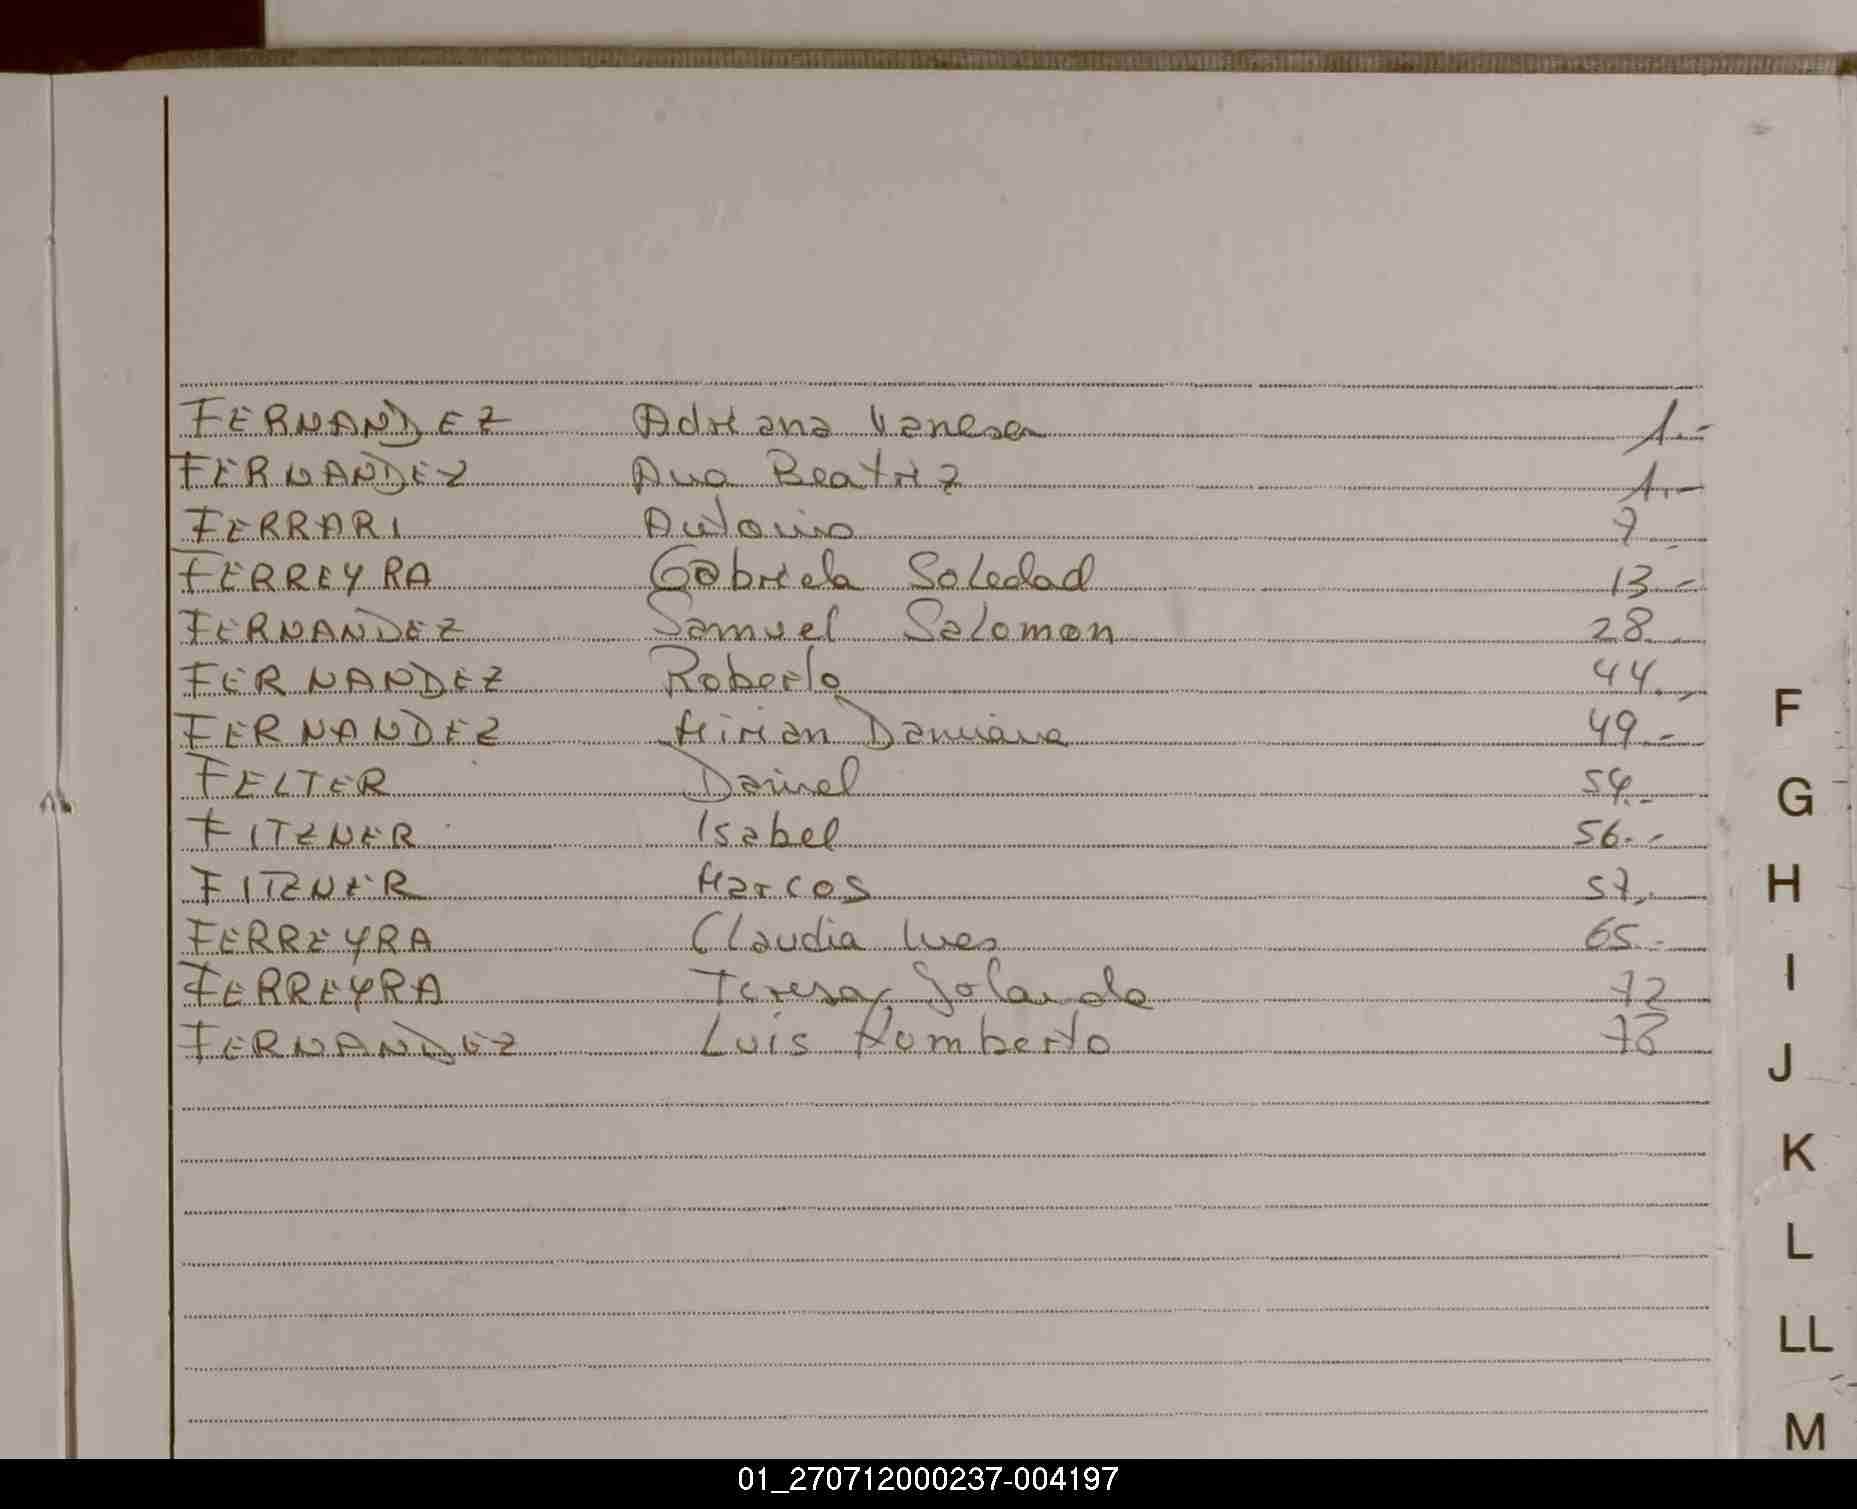 FERNANDEZ Adriana Vanesa 1.-
FERNANDEZ Ana Beatriz 1.-
FERRARI Antonio 7
FERREYRA Gabriela Soledad 13-
FERNANDEZ Samuel Salomon 28
FERNANDEZ Roberto 44.-
FERNANDEZ Mirian Damiana 49.-
FELTER Daniel 54.-
FITZNER Isabel 56.-
FITZNER Marcos 57.-
FERREYRA Claudia Ines 65.-
FERREYRA Teresa Yolanda 72
FERNANDEZ Luis Humberto
F
G
H
I
J
K
L
LL
M
01_270712000237-004197